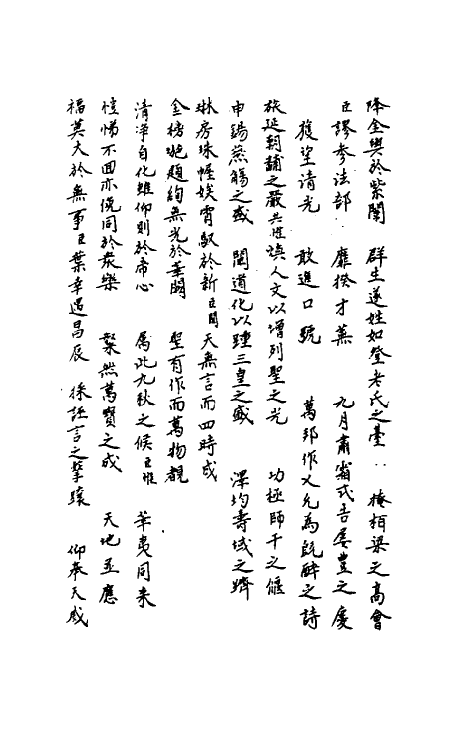 降金輿於紫闈　群生遂性如登老氏之臺　掩柏梁之高會
臣謬參法部　靡揆才蕪　九月肅霜式吾屡豊之慶
獲望清光　敢進口號　萬邦作乂允為既醉之詩
旅延朝黼之嚴共惟煥人文以增列聖之光　功極師千之僊
申錫燕觴之盛　闡道化以踵三皇之盛　澤均壽域之躋
琳房珠幄娭霄馭於新臣聞　天無言而四時成
金榜瑰題絢無光於華闕　聖有作而萬物覩
清净自化雖仰則於帝心　属此九秋之候臣惟　華夷同来
愷悌不回亦俛同於衆樂　粲然萬寶之成　天地並應
福莫大於無事臣葉幸遇昌辰　採謡言之擊壤　仰奉天威